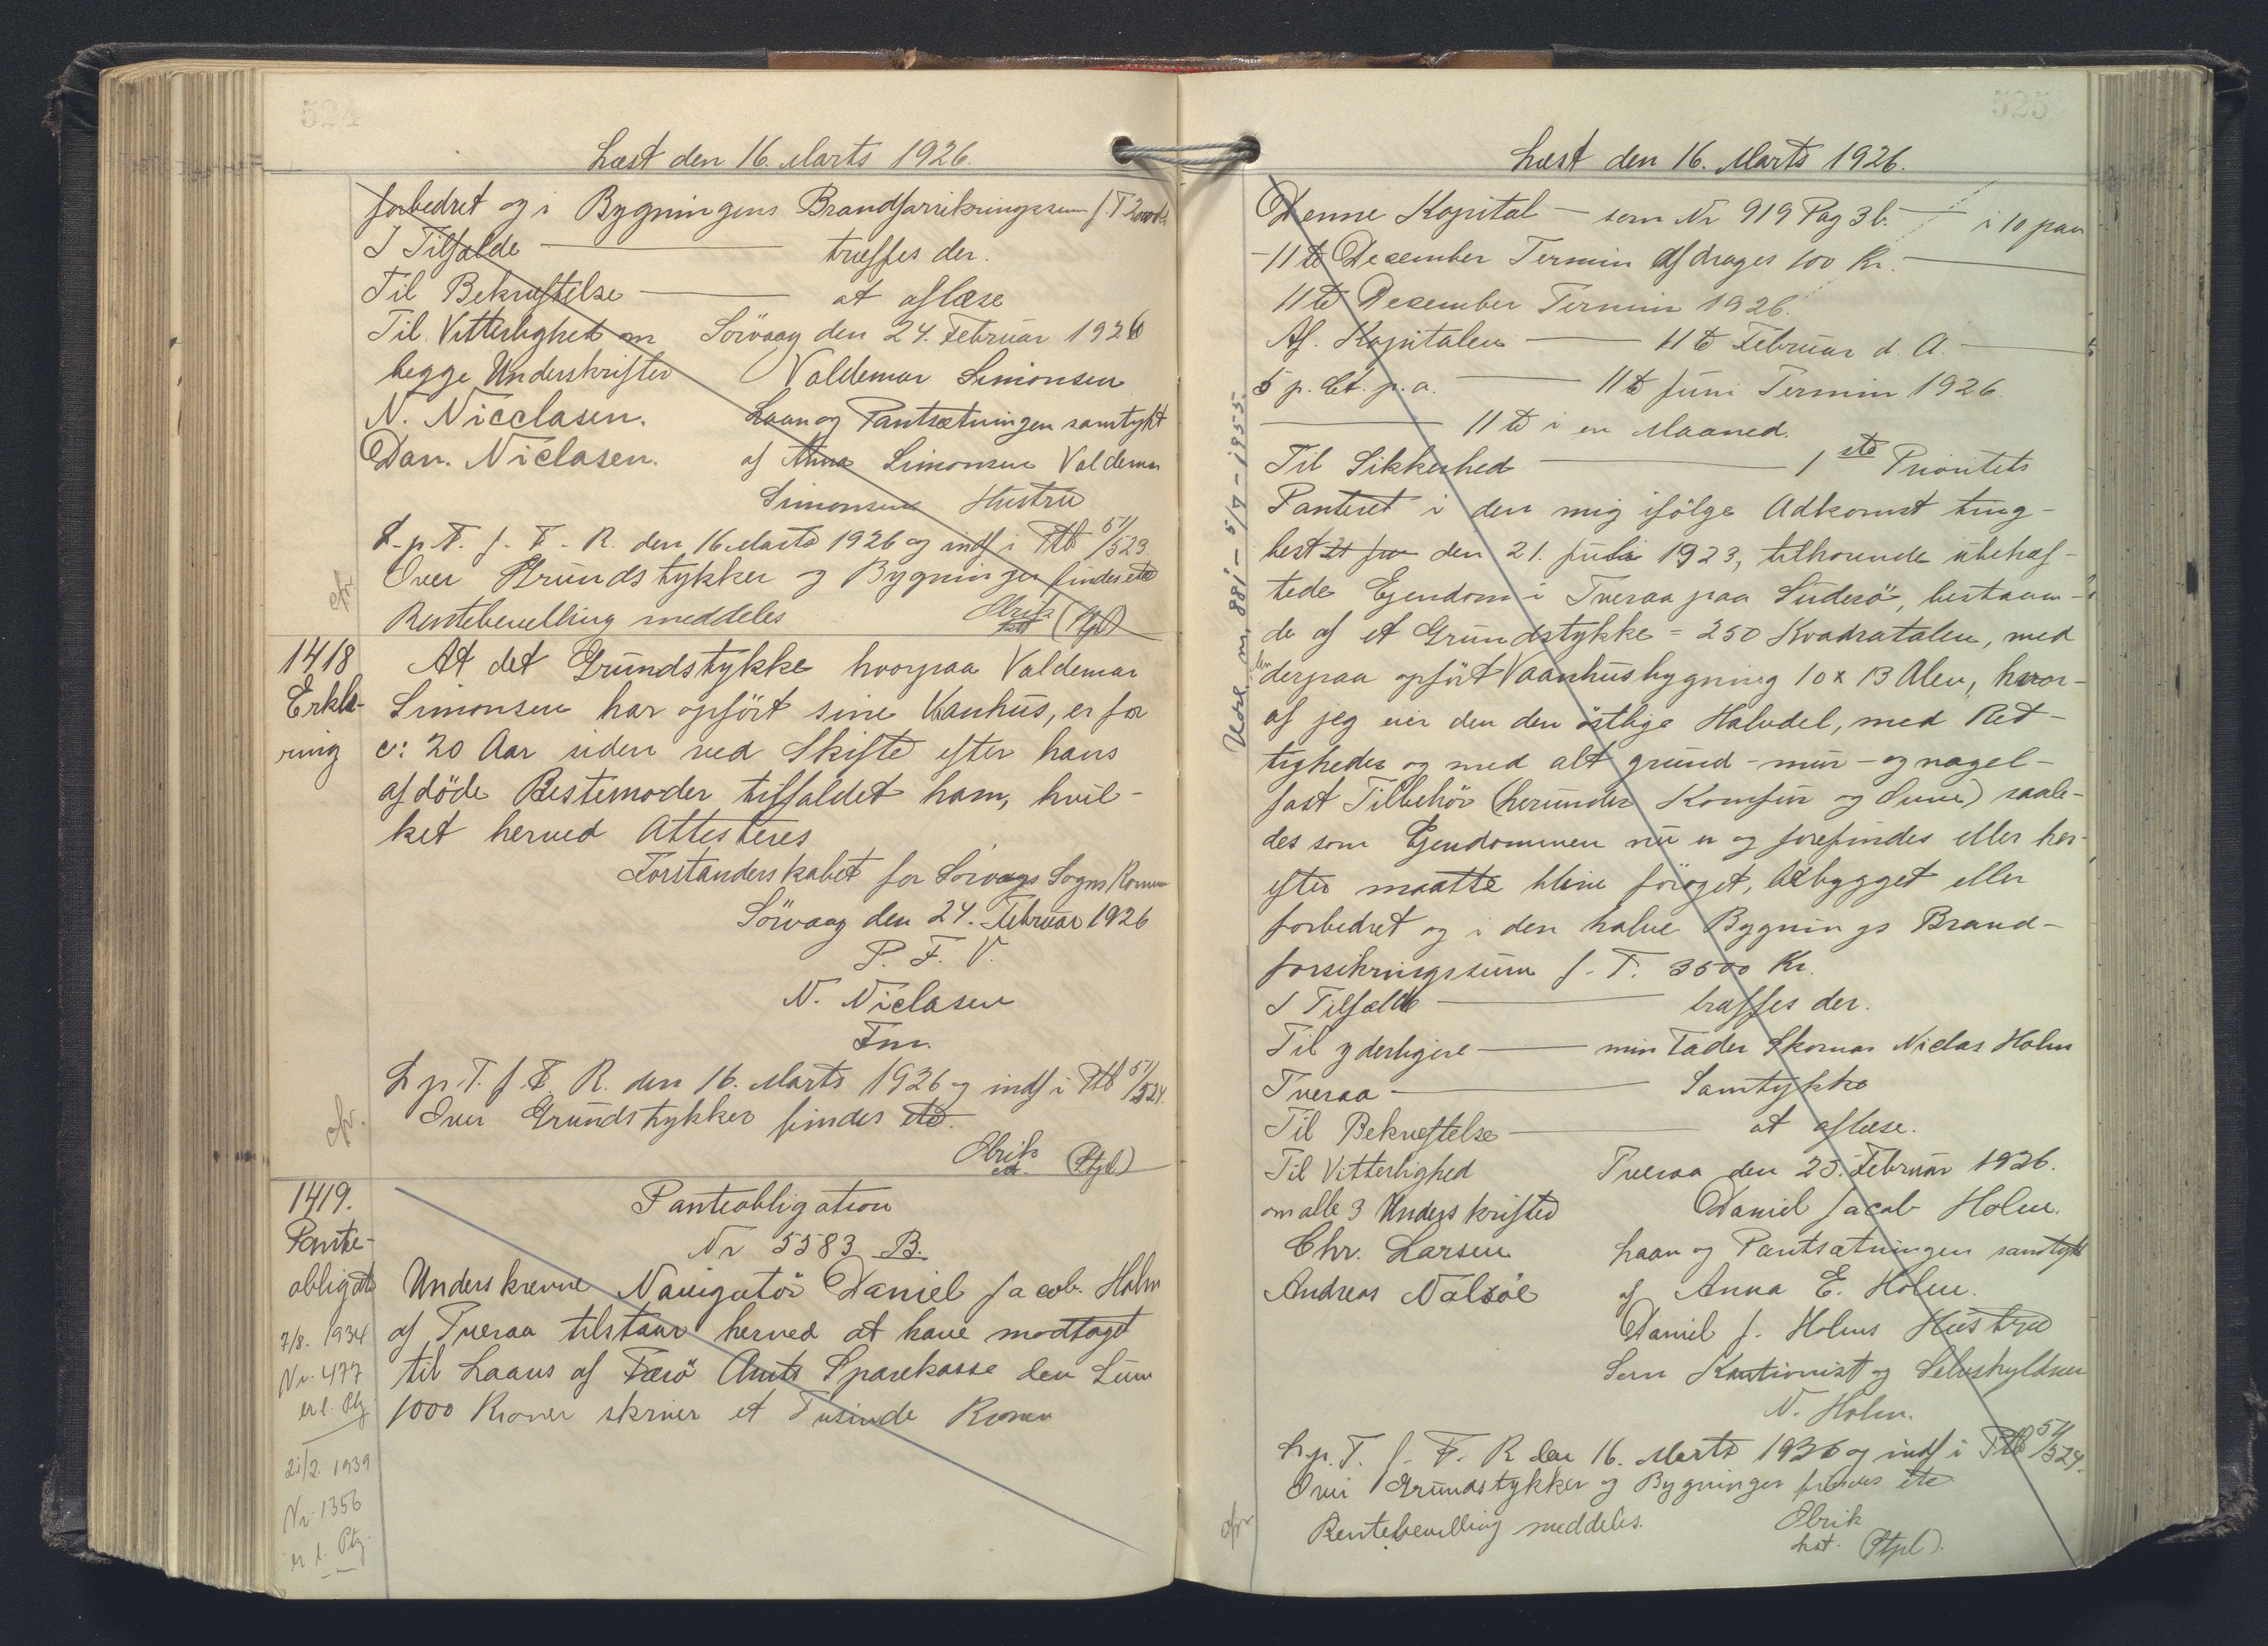 524
Læst den 16. Marts 1926.
forbedret og i Bygningens Brandforsikringssum f T 2000 Kr
I Tilfælde — træffes der.
Til Bekræftelse — at aflæse
Til Vitterlighed om Sörvaag den 24. Februar 1926
begge Underskrifter Valdemar Simonsen
N. Nicclasen. Laan og Pantsætningen samtykt
Dan. Niclasen. af Anna Simonsen Valdemar
Simonsens Hustru
L. p. T. f. F. R. den 16 Marts 1926 og indf i Ptb 51/523.
Over Grundstykker og Bygninger findes etc
cfr.
Rentebevilling meddeles Obrik
cst (Ptpl)
1418
Erklæ-
ring
At det Grundstykke hvorpaa Valdemar
Simonsen har opfört sine Vaanhus, er for
c: 20 Aar siden ved Skifte efter hans
afdöde Bestemoder tilfaldet ham, hvil-
ket herved Attesteres
Forstanderskabet for Sörvaags Sogns Komm
Sörvaag den 24. Februar 1926
P. F. V.
N. Niclasen
Fm.
L p. T. f F. R. den 16. Marts 1926 og indf i Ptb 51/524.
cfr.
Over Grundstykker findes etc.
Obrik
cst. (Ptpl)
1419.
Pante-
obligat
7/8. 1934
Nr. 477
er l. Ptg
21/2. 1939
Nr. 1356
er l. Ptg.
Panteobligation
Nr 5583 B.
Underskrevne Navigatör Daniel Jacob Holm
af Tveraa tilstaar herved at have modtaget
til Laans af Færö Amts Sparekasse den Sum
1000 Kroner skriver et Tusinde Kroner
525
Læst den 16. Marts 1926.
Denne Kapital — som Nr 919 Pag 36. — i 10 paa
- 11te December Termin Afdrages 100 Kr. —
11te December Termin 1926.
Af. Kapitalen — 11te Februar d. A. —
5 p. Ct. p. a. — 11te Juni Termin 1926.
— 11te i en Maaned.
Til Sikkerhed — 1ste Prioritets
Panteret i den mig ifölge Adkomst ting-
læst den 21. Juli 1923, tilhorende ubehæf-
tede Ejendom i Tveraa paa Suderö, bestaaen-
de af et Grundstykke = 250 Kvadratalen, med
den
derpaa opfört Vaanhusbygning 10 x 13 Alen, hvor-
af jeg eier den den östlige Halvdel, med Ret-
tigheder og med alt grund - mur - og nagel-
fast Tilbehör (herunder Komfur og Ovne) saale-
des som Ejendommen nu er og forefindes eller her-
efter maatte blive foröget, tilbygget eller
forbedret og i den halve Bygnings Brand-
forsikringssum f. T. 3500 Kr.
I Tilfælde — træffes der.
Til yderligere — min Fader Skomar Niclas Holm
Tveraa — Samtykke
Til Bekræftelse — at aflæse.
Til Vitterlighed Tveraa den 25. Februar 1926.
om alle 3 Underskrifter Daniel Jacob Holm.
Chr. Larsen Laan og Pantsætningen samtykt
Andreas Nolsöe af Anna E. Holm.
Daniel J. Holms Hustru
Som Kautionist og Selvskyldner
N. Holm.
L. p. T. f. F. R den 16. Marts 1926 og indf i Ptb 51/524.
Over Grundstykker og Bygninger findes etc
cfr
Rentebevilling meddeles. Obrik
cst. (Ptpl).
Udsl. m. 881 - 5/7 - 1955.